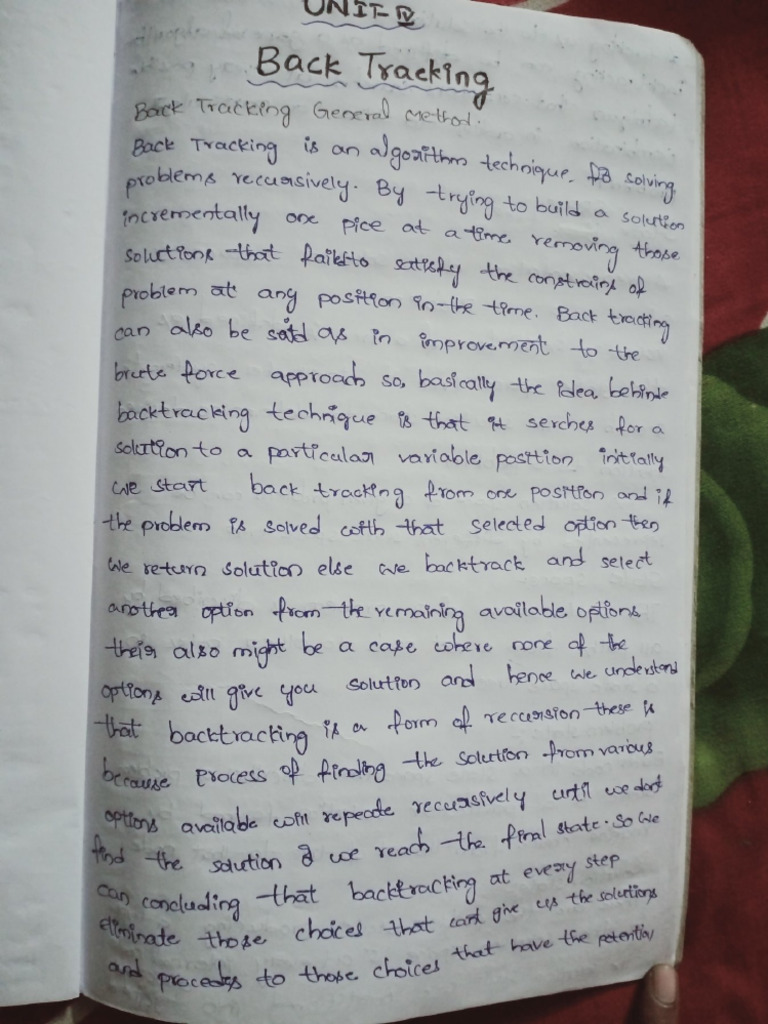 UNIT-IV
Back Tracking
Back Tracking General Method.
Back Tracking is an algorithm technique. for solving
problems recursively. By trying to build a solution
incrementally one pice at a time removing those
solutions that failsto satisfy the constrains of
problem at any position in the time. Back tracting
can also be said as in improvement to the
brute force approach so, basically the idea behinde
backtracking technique is that it serches for a
solution to a particular variable position initially
we start back tracking from one position and if
the problem is solved with that selected option then
we return solution else we backtrack and select
another option from the remaining available options
their also might be a case where none of the
options will give you solution and hence we understand
that backtracking is a form of recursion these is
because process of finding the solution from various
options available will repeate recursively until we don't
find the solution or we reach the final state. So we
can concluding that backtracking at every step
eliminate those choices that cant give us the solutions
and procedes to those choices that have the potential